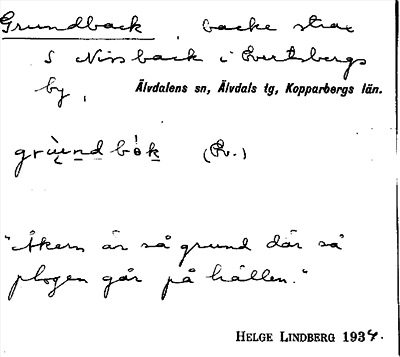 Grundback, backe strax
S Nissback i Evertsbergs
by, Älvdalens sn, Älvdals tg, Kopparbergs län.
grùndbòk (Ev.)
"Åkern är så grund där så
plogen går på hällen."
HELGE LINDBERG 1934.